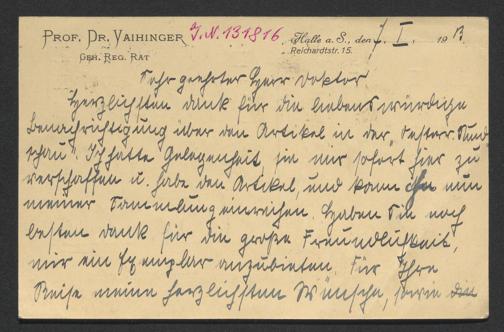 PROF. DR. VAIHINGER J.N. 131816 Halle a. S., den 7. I. 1913
GEH. REG. RAT Reichardtstr. 15.
Sehr geehrter Herr Doktor
Herzlichsten Dank für die liebenswürdige
Benachrichtigung über den Artikel in der „Oesterr. Rund
schau". Ich hatte Gelegenheit, sie mir sofort hier zu
verschaffen u. habe den Artikel, und kann ihn nun
meiner Sammlung einreihen. Haben Sie noch
besten Dank für die große Freundlichkeit,
mir ein Exemplar anzubieten. Für Ihre
Reise meine herzlichsten Wünsche, sowie